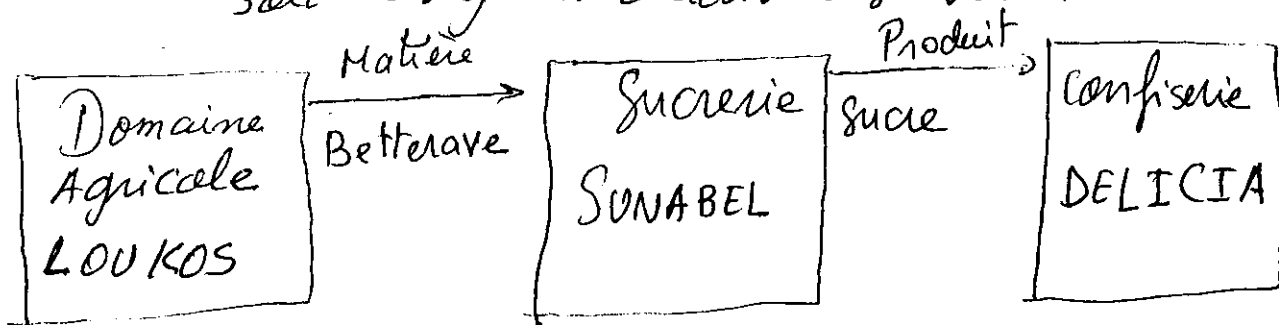 Domaine
Agricole
LOUKOS
Matière
Betterave
Sucrerie
SUNABEL
Produit
Sucre
Confiserie
DELICIA